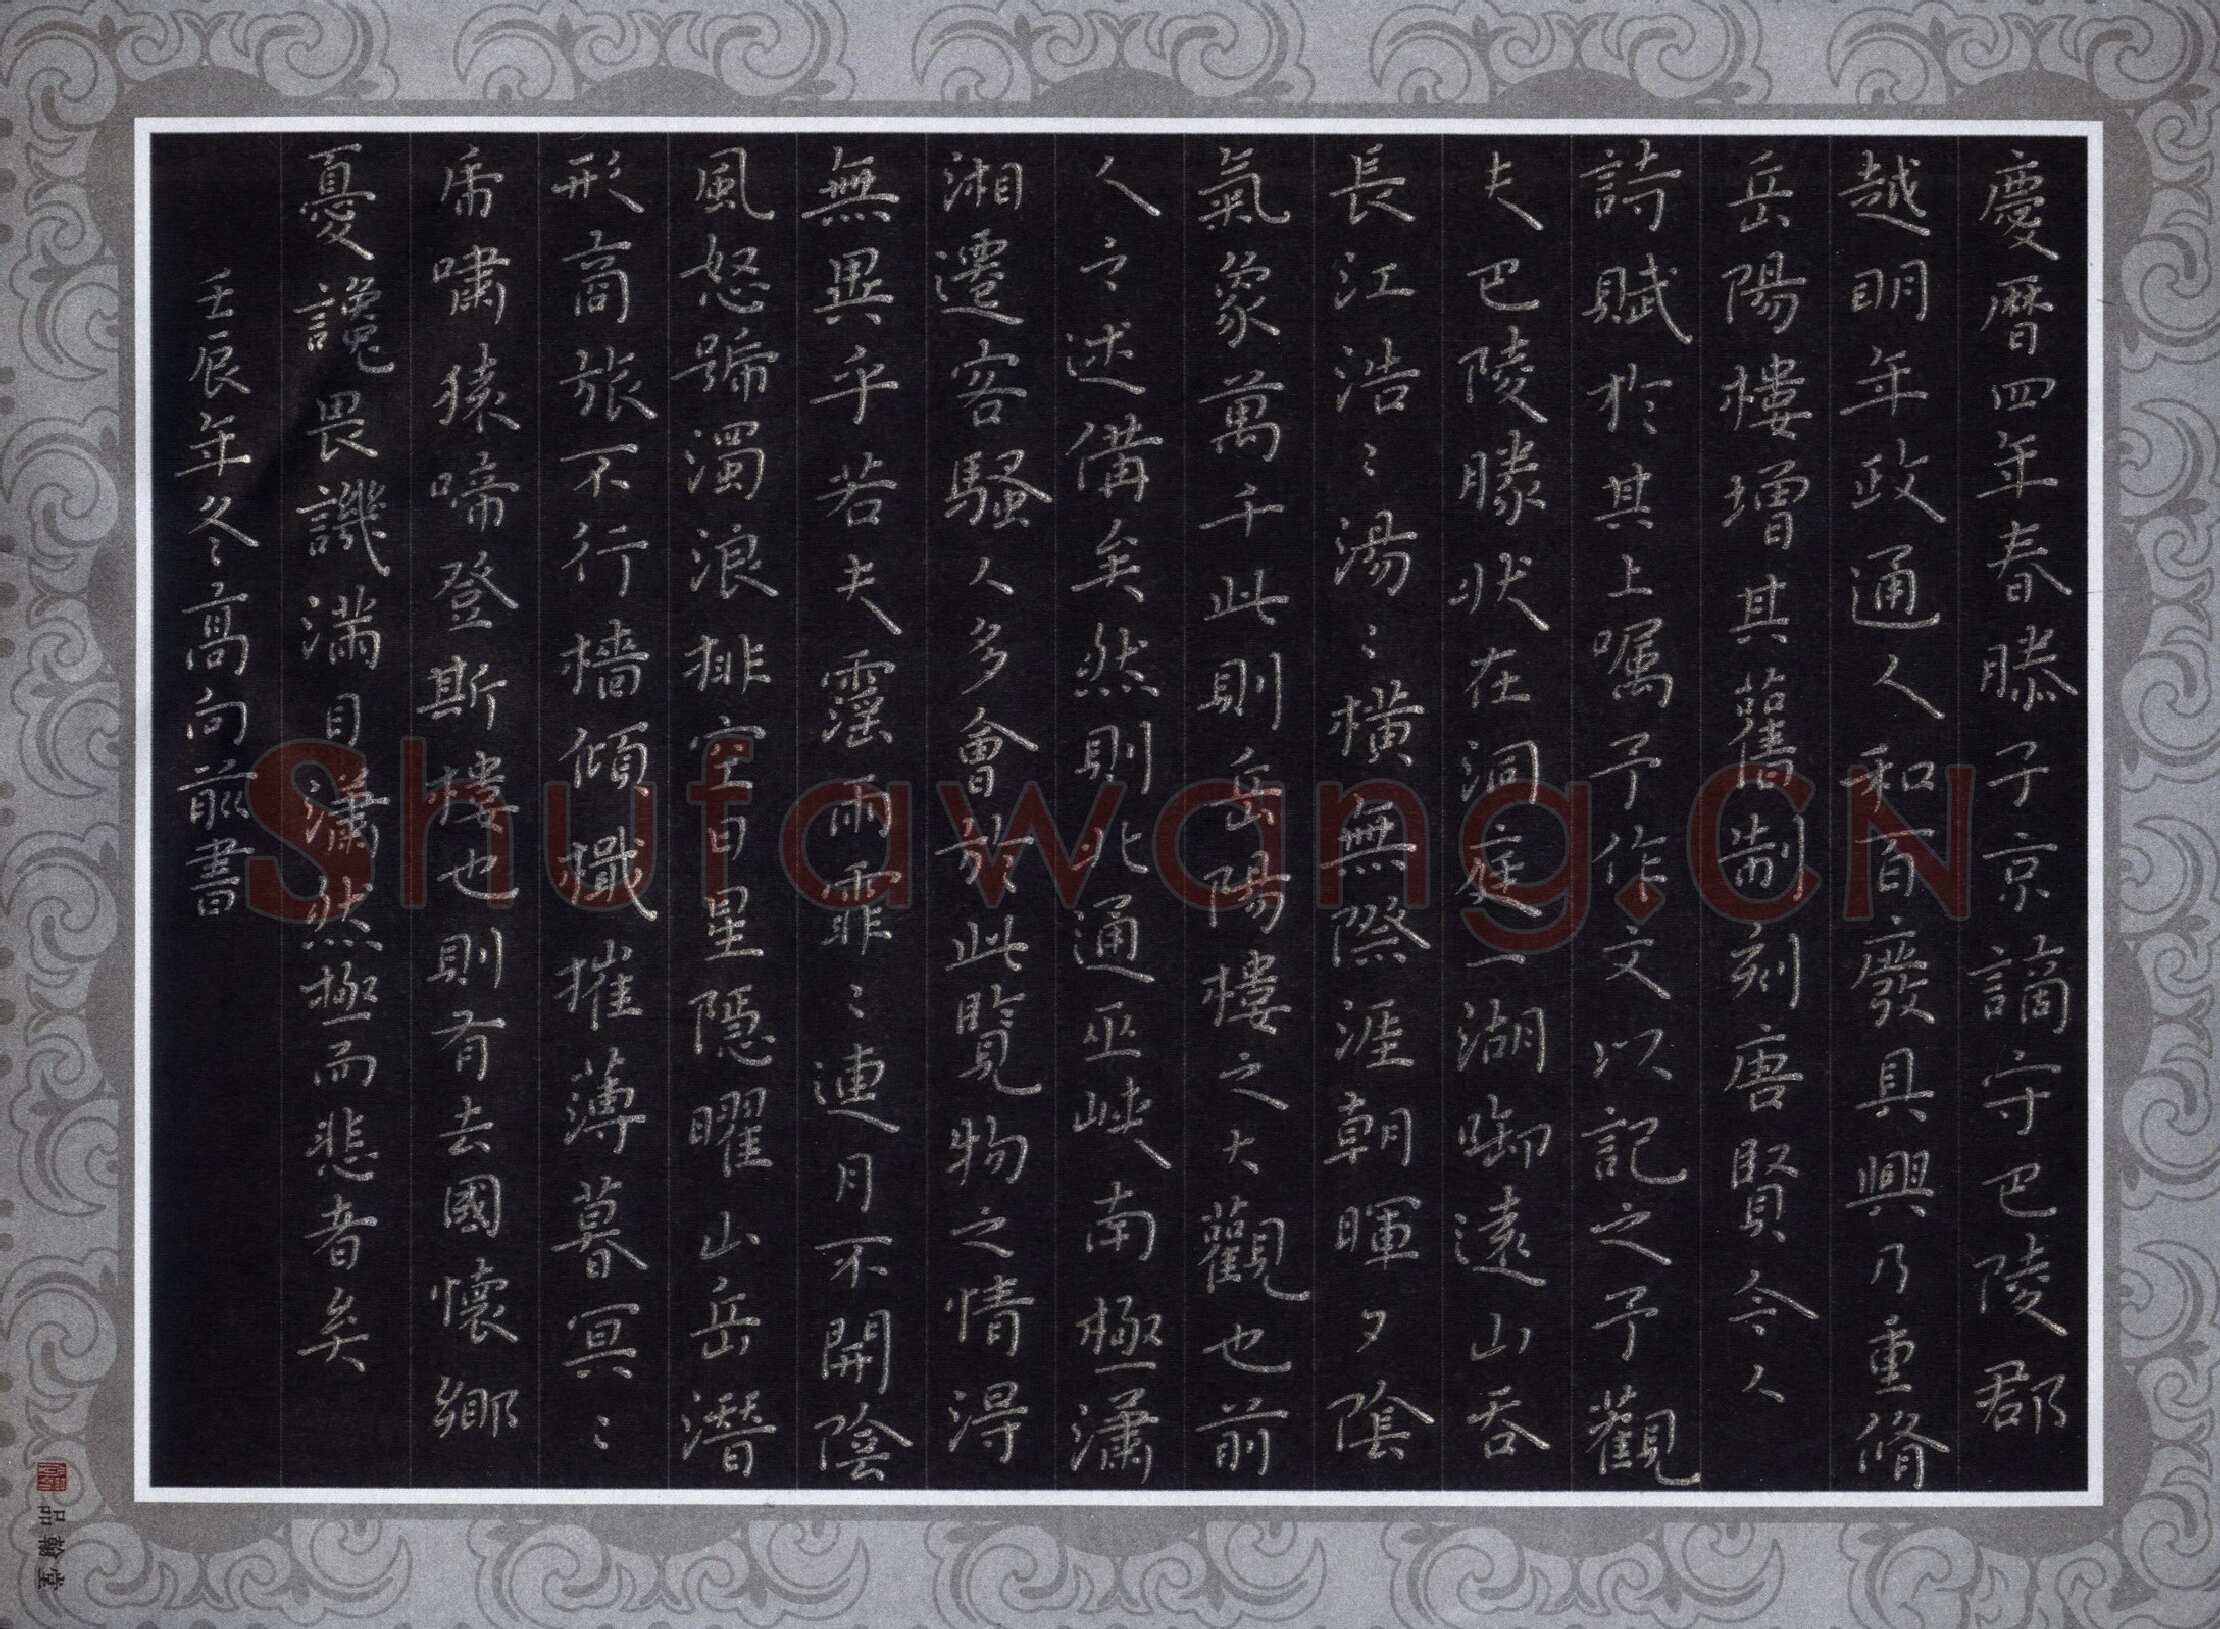 慶曆四年春滕子京謫守巴陵郡
越明年政通人和百廢具興乃重脩
岳陽樓增其舊制刻唐賢今人
詩賦於其上嘱予作文以記之予觀
夫巴陵勝狀在洞庭一湖啣遠山吞
長江浩〻湯〻橫無際涯朝暉夕陰
氣象萬千此則岳陽樓之大觀也前
人之述備矣然則北通巫峽南極瀟
湘遷客騷人多會於此覽物之情得
無異乎若夫霪雨霏〻連月不開陰
風怒號濁浪排空日星隱曜山岳潛
形商旅不行檣傾檝摧薄暮冥〻
虎嘯猿啼登斯樓也則有去國懷鄉
憂讒畏譏滿目瀟然極而悲者矣
壬辰年冬高向前書
品翰堂
Shufawang.CN